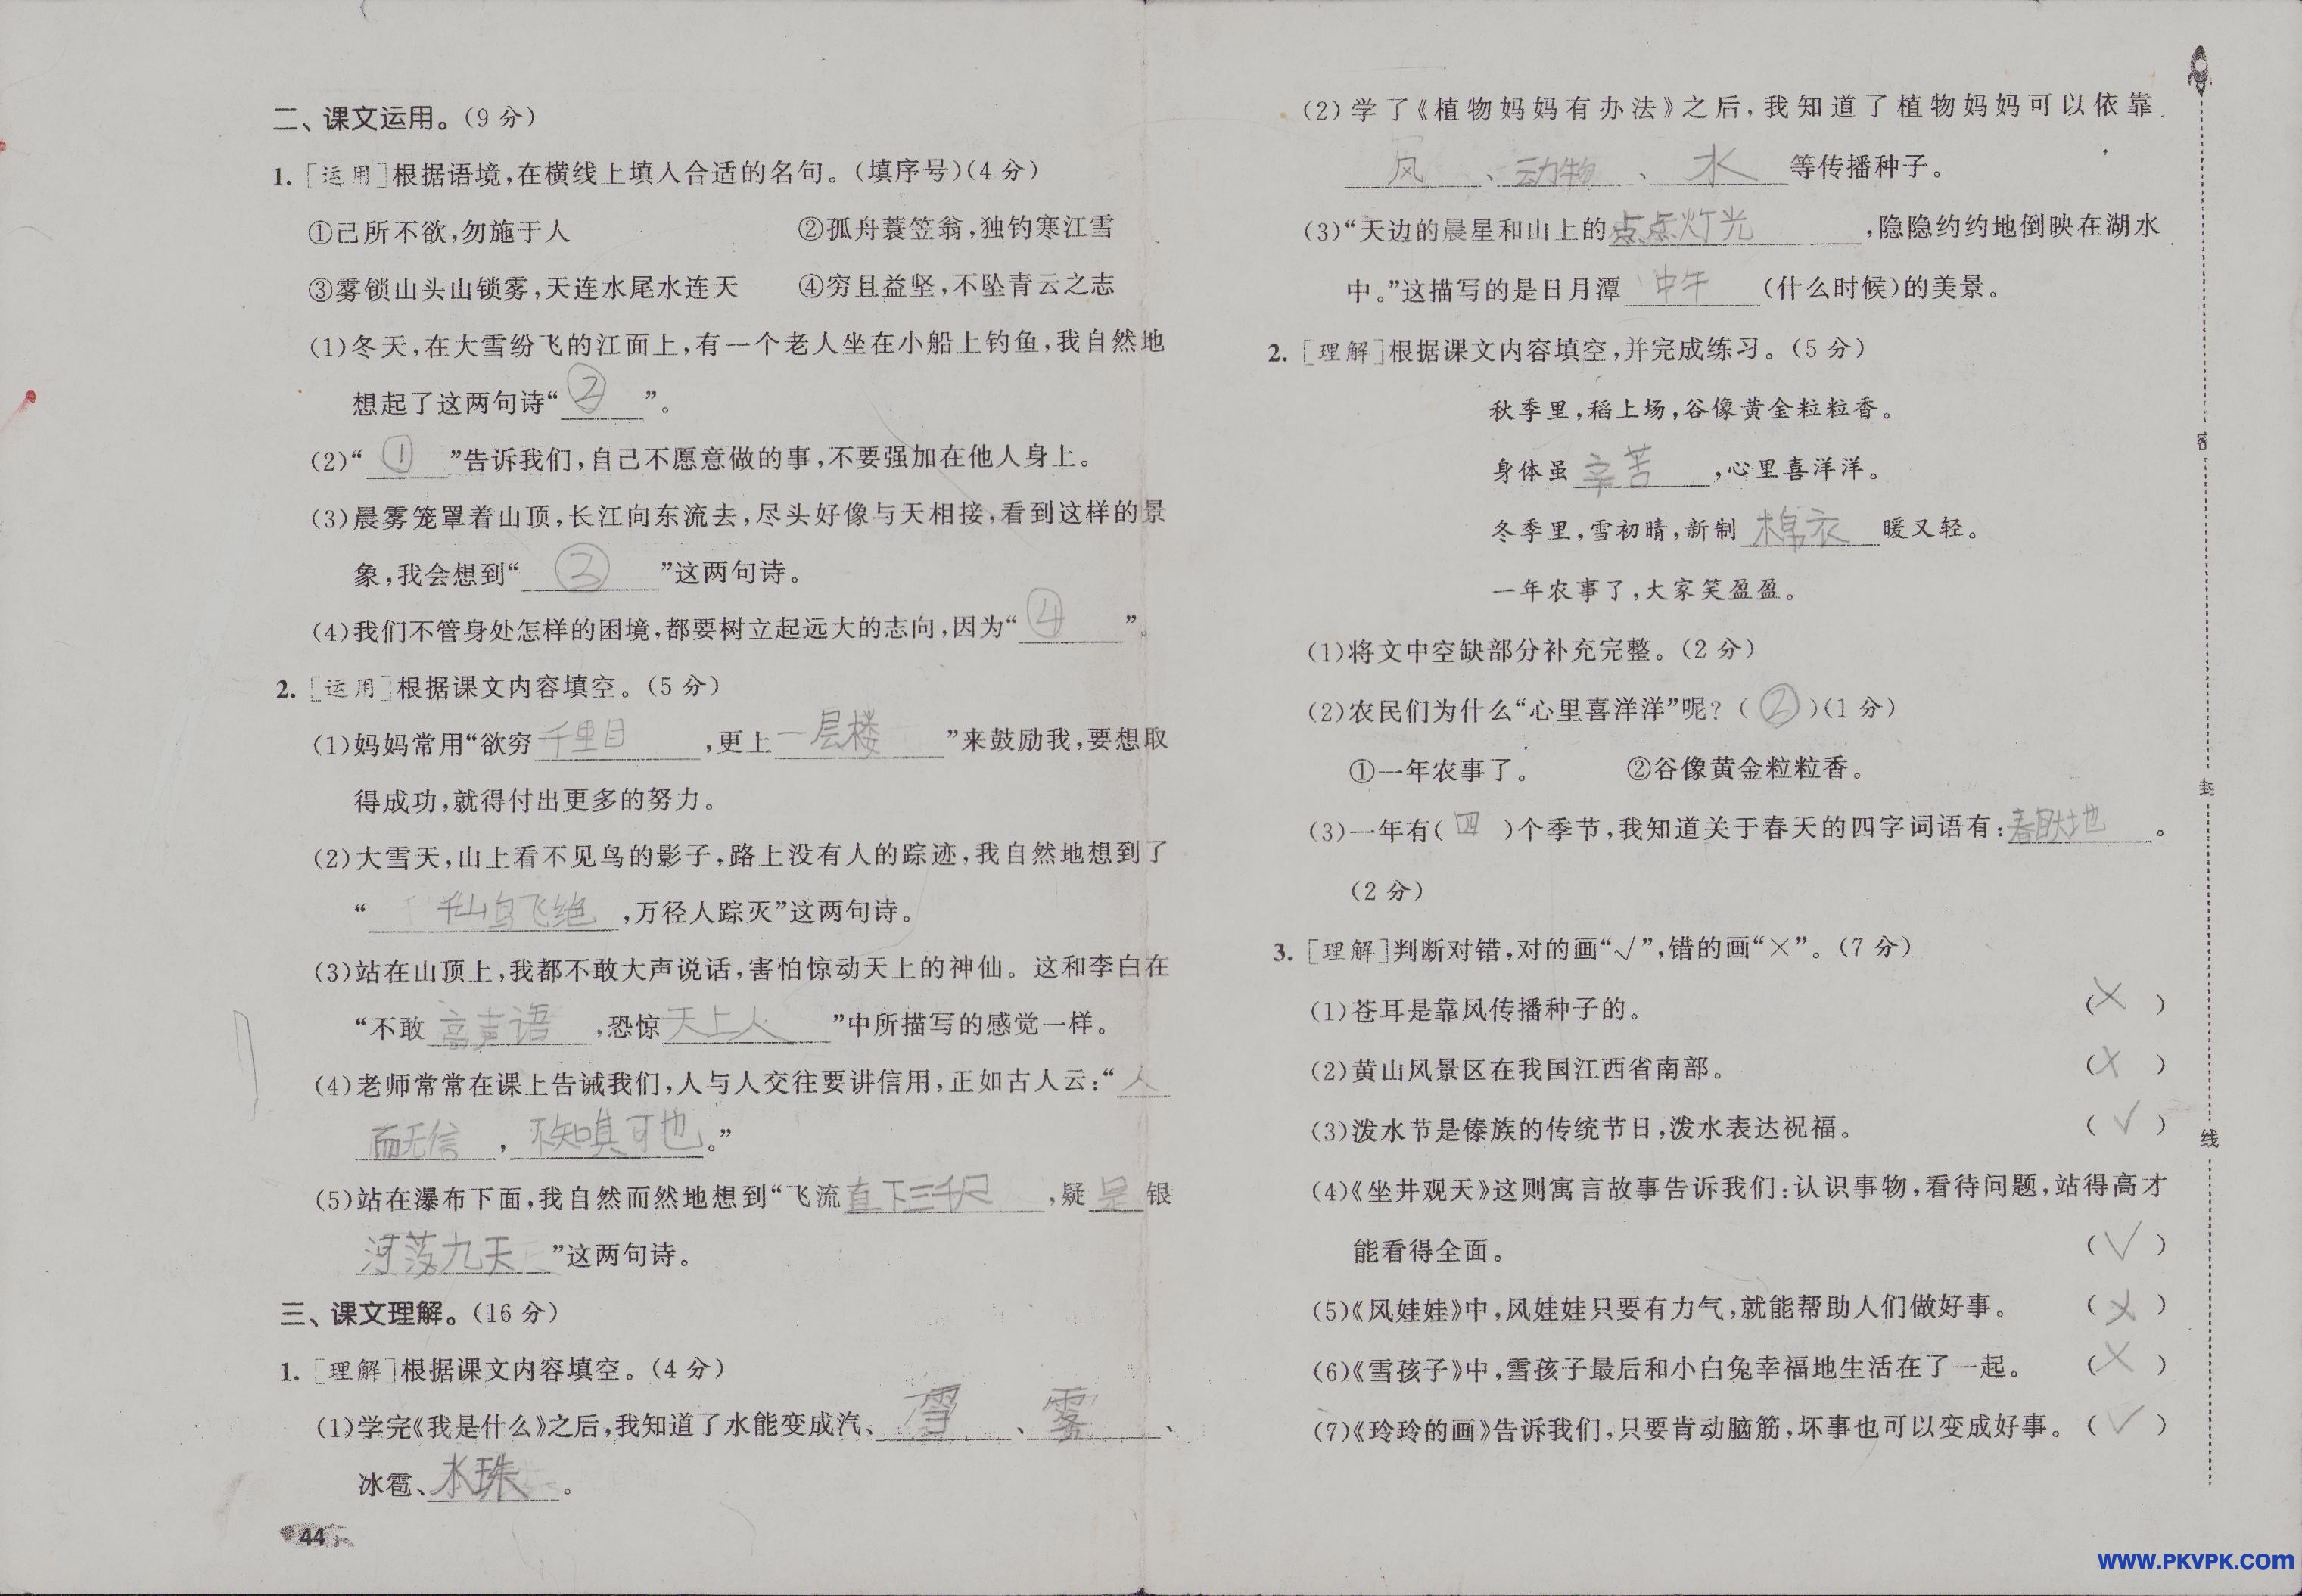 二、课文运用。(9分)
1. [运用]根据语境,在横线上填入合适的名句。(填序号)(4分)
①己所不欲,勿施于人 ②孤舟蓑笠翁,独钓寒江雪
③雾锁山头山锁雾,天连水尾水连天 ④穷且益坚,不坠青云之志
(1)冬天,在大雪纷飞的江面上,有一个老人坐在小船上钓鱼,我自然地
想起了这两句诗“②”。
(2)“①”告诉我们,自己不愿意做的事,不要强加在他人身上。
(3)晨雾笼罩着山顶,长江向东流去,尽头好像与天相接,看到这样的景
象,我会想到“③”这两句诗。
(4)我们不管身处怎样的困境,都要树立起远大的志向,因为“④”。
2. [运用]根据课文内容填空。(5分)
(1)妈妈常用“欲穷千里目,更上一层楼”来鼓励我,要想取
得成功,就得付出更多的努力。
(2)大雪天,山上看不见鸟的影子,路上没有人的踪迹,我自然地想到了
“千山鸟飞绝,万径人踪灭”这两句诗。
(3)站在山顶上,我都不敢大声说话,害怕惊动天上的神仙。这和李白在
“不敢高声语,恐惊天上人”中所描写的感觉一样。
(4)老师常常在课上告诫我们,人与人交往要讲信用,正如古人云:“人
而无信,不知嗔可也。”
(5)站在瀑布下面,我自然而然地想到“飞流直下三千尺,疑是银
河落九天”这两句诗。
三、课文理解。(16分)
1. [理解]根据课文内容填空。(4分)
(1)学完《我是什么》之后,我知道了水能变成汽、雪、雾、
冰雹、水珠。
44
(2)学了《植物妈妈有办法》之后,我知道了植物妈妈可以依靠
风、动物、水等传播种子。
(3)“天边的晨星和山上的点点灯光,隐隐约约地倒映在湖水
中。”这描写的是日月潭中午(什么时候)的美景。
2. [理解]根据课文内容填空,并完成练习。(5分)
秋季里,稻上场,谷像黄金粒粒香。
身体虽辛苦,心里喜洋洋。
冬季里,雪初晴,新制棉衣暖又轻。
一年农事了,大家笑盈盈。
(1)将文中空缺部分补充完整。(2分)
(2)农民们为什么“心里喜洋洋”呢?(②)(1分)
①一年农事了。 ②谷像黄金粒粒香。
(3)一年有(四)个季节,我知道关于春天的四字词语有:春眠大地。
(2分)
3. [理解]判断对错,对的画“√”,错的画“×”。(7分)
(1)苍耳是靠风传播种子的。(×)
(2)黄山风景区在我国江西省南部。(×)
(3)泼水节是傣族的传统节日,泼水表达祝福。(√)
(4)《坐井观天》这则寓言故事告诉我们:认识事物,看待问题,站得高才
能看得全面。(√)
(5)《风娃娃》中,风娃娃只要有力气,就能帮助人们做好事。(×)
(6)《雪孩子》中,雪孩子最后和小白兔幸福地生活在了一起。(×)
(7)《玲玲的画》告诉我们,只要肯动脑筋,坏事也可以变成好事。(√)
密
封
线
www.PKVPK.com